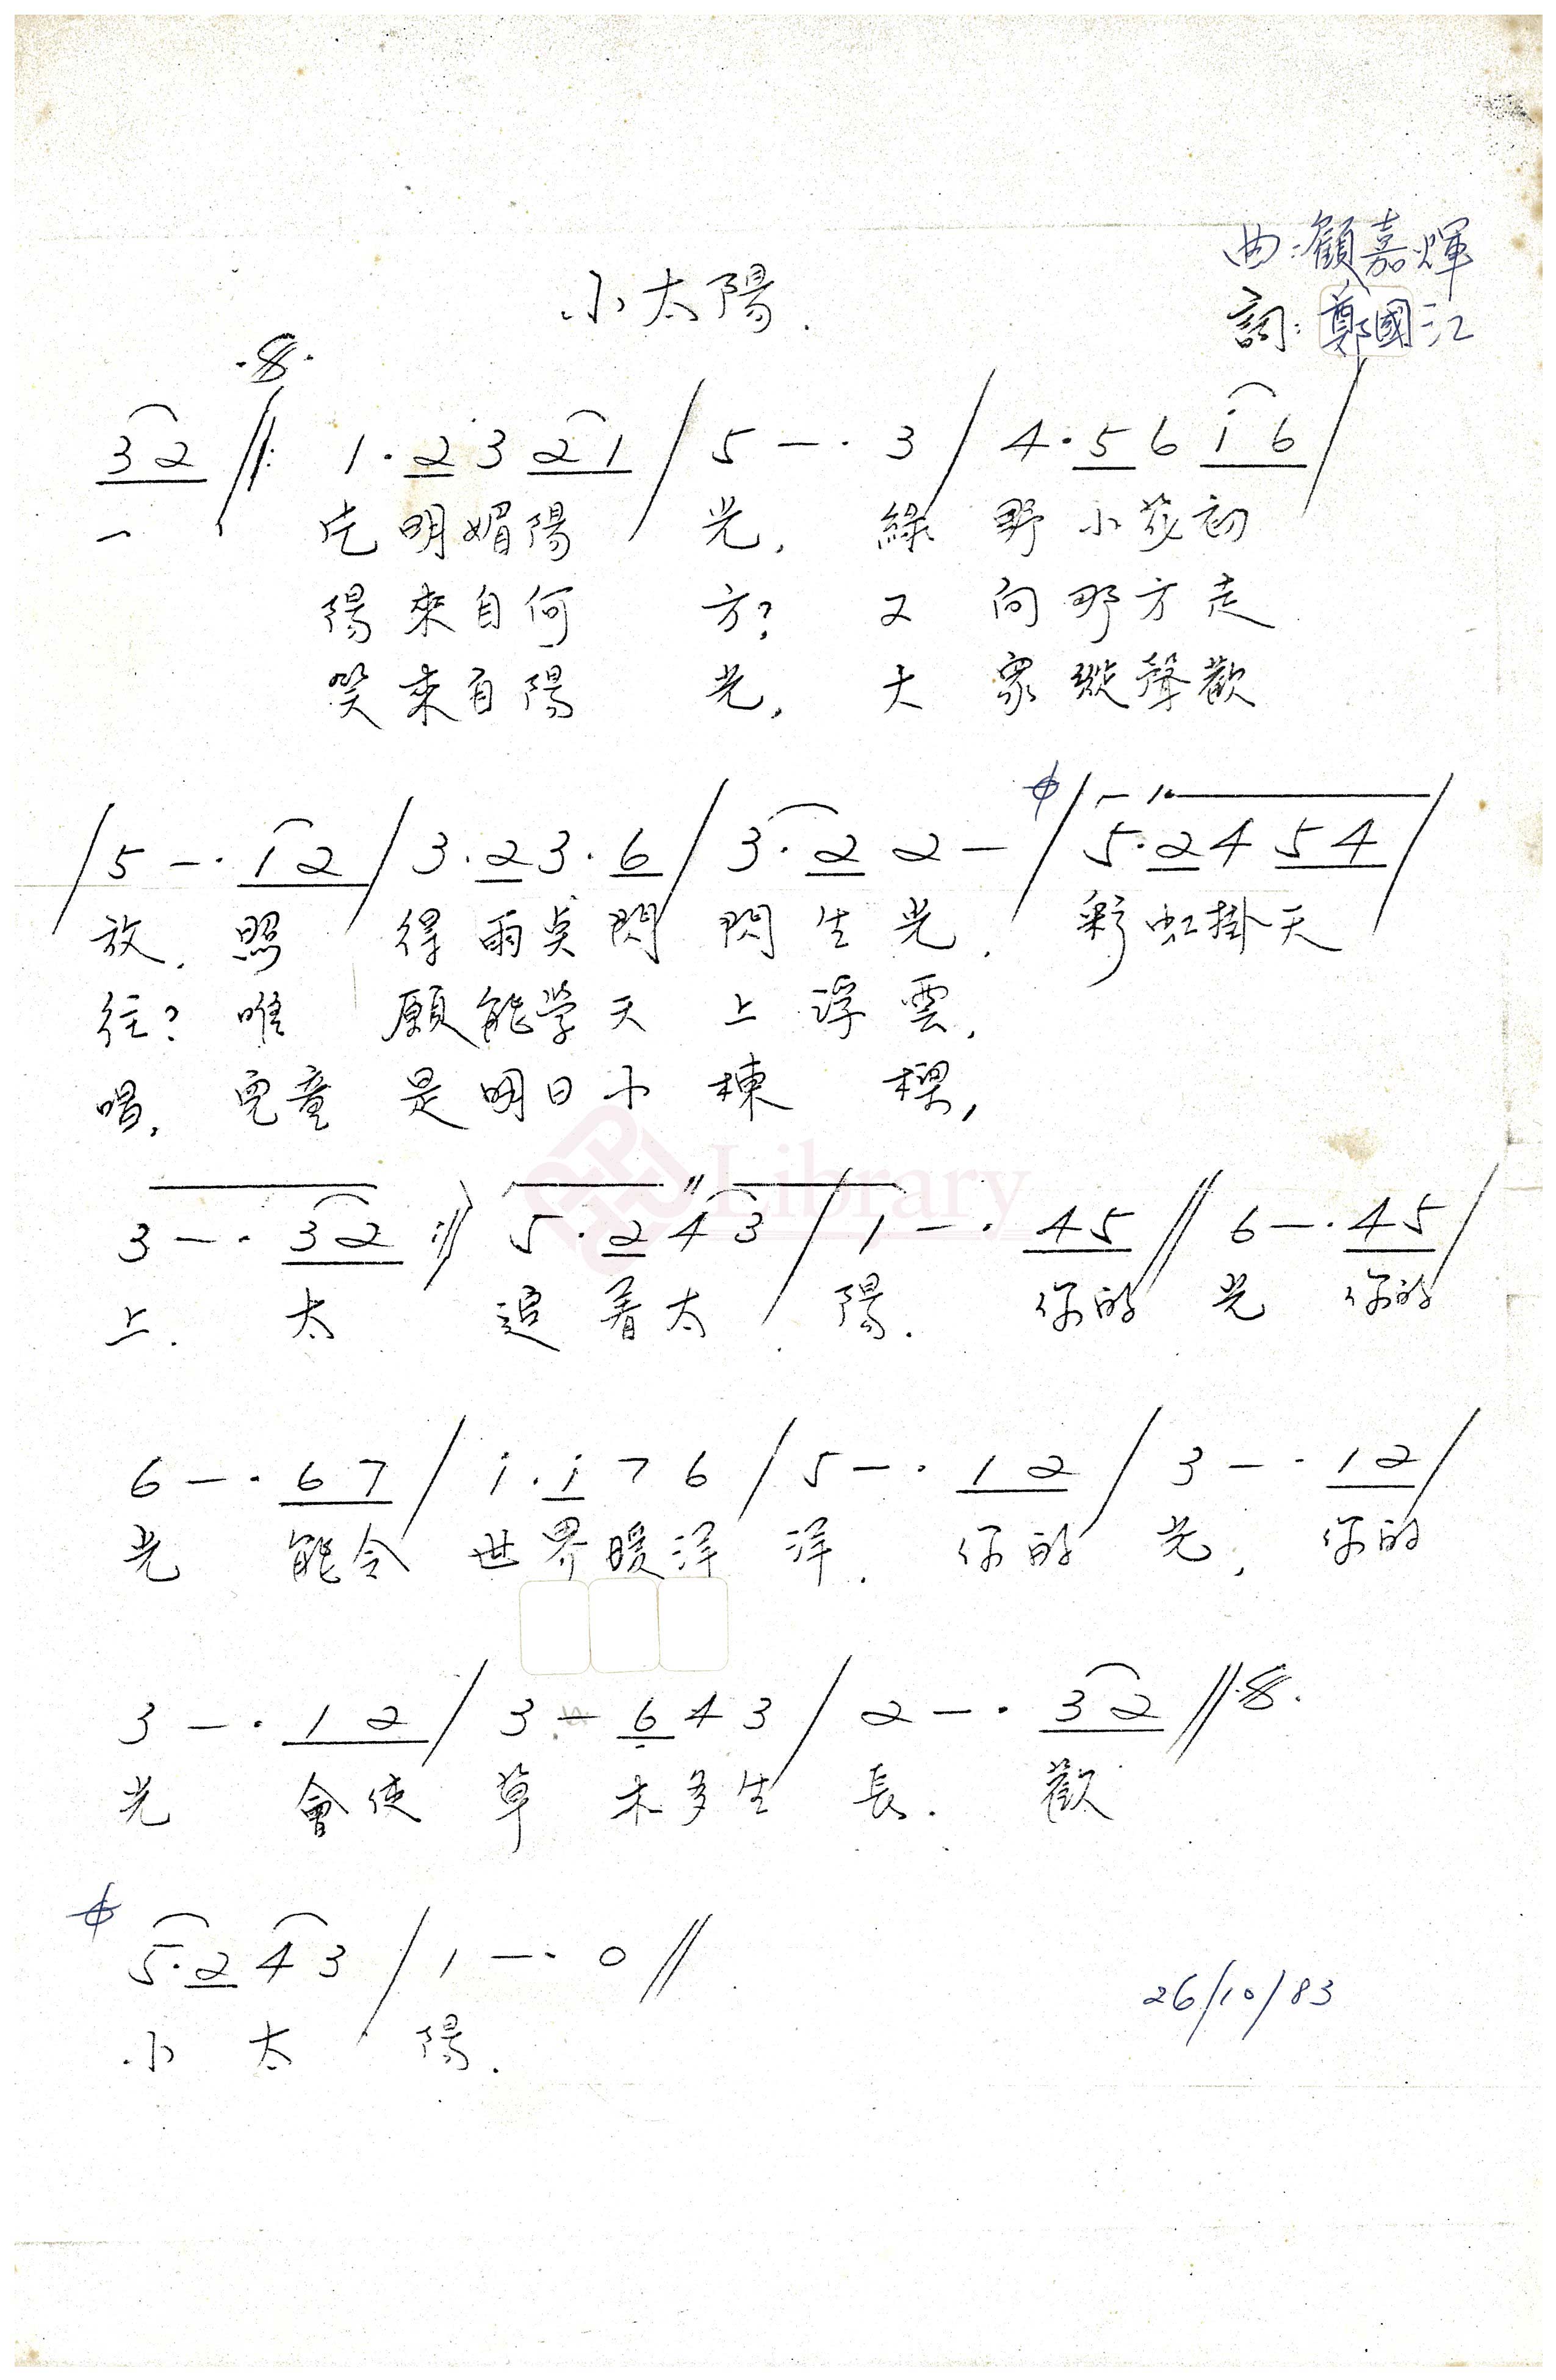 曲:顧嘉煇
小太陽.
詞:鄭國江
3 2 //: 1 . 2 3 2 1 / 5 — . 3 / 4 . 5 6 i 6 /
一 片 明 媚 陽 光, 綠 野 小 花 初
陽 來 自 何 方? 又 向 那 方 走
笑 來 自 陽 光, 大 家 縱 聲 歡
/ 5 — . 1 2 / 3 . 2 3 . 6 / 3 . 2 2 — / 5 . 2 4 5 4 /
放, 照 得 雨 点 閃 閃 生 光. 彩 虹 掛 天
往? 唯 願 能 学 天 上 浮 雲,
唱, 兒 童 是 明 日 小 棟 樑,
Library
3 — . 3 2 :// 5 . 2 4 3 / 1 — . 4 5 // 6 — . 4 5 /
上. 太 追 着 太 陽. 你的 光 你的
6 — . 6 7 / i . i 7 6 / 5 — . 1 2 / 3 — . 1 2 /
光 能令 世 界 暖 洋 洋. 你的 光, 你的
3 — . 1 2 / 3 — 6 4 3 / 2 — . 3 2 //
光 會使 草 木 多 生 長. 歡
5 . 2 4 3 / 1 — . 0 //
26/10/83
小 太 陽.